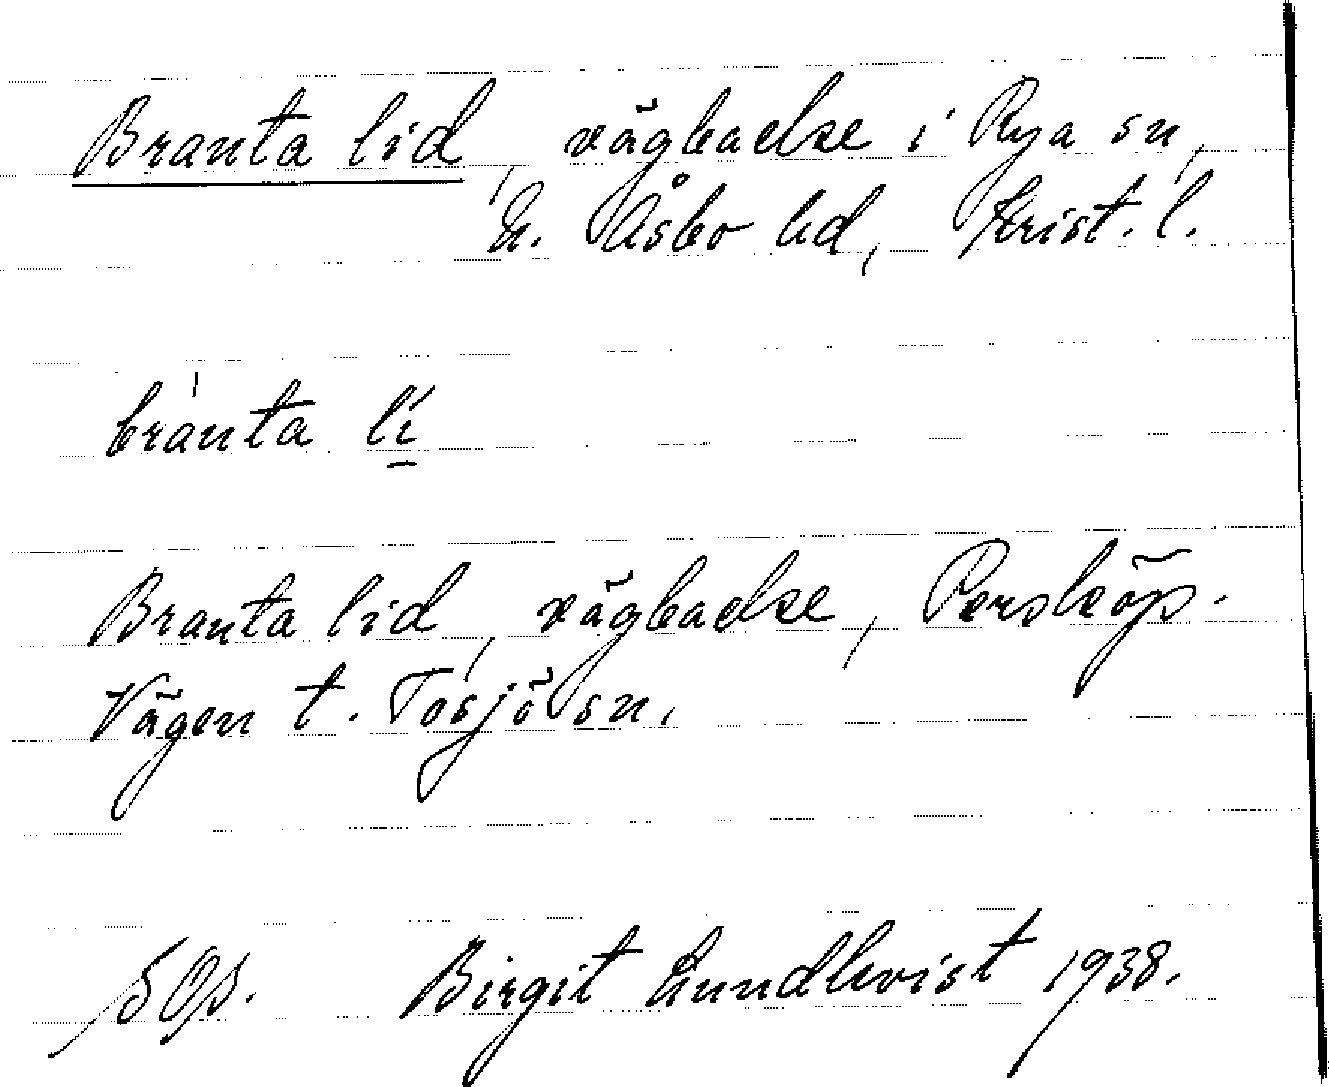 Branta lid, vägbacke i Rya sn,
N. Åsbo hd, Krist. l.
bránta lí
Branta lid, vägbacke, Perstorps-
Vägen t. Tosjö sn.
Birgit Lundkvist 1938.